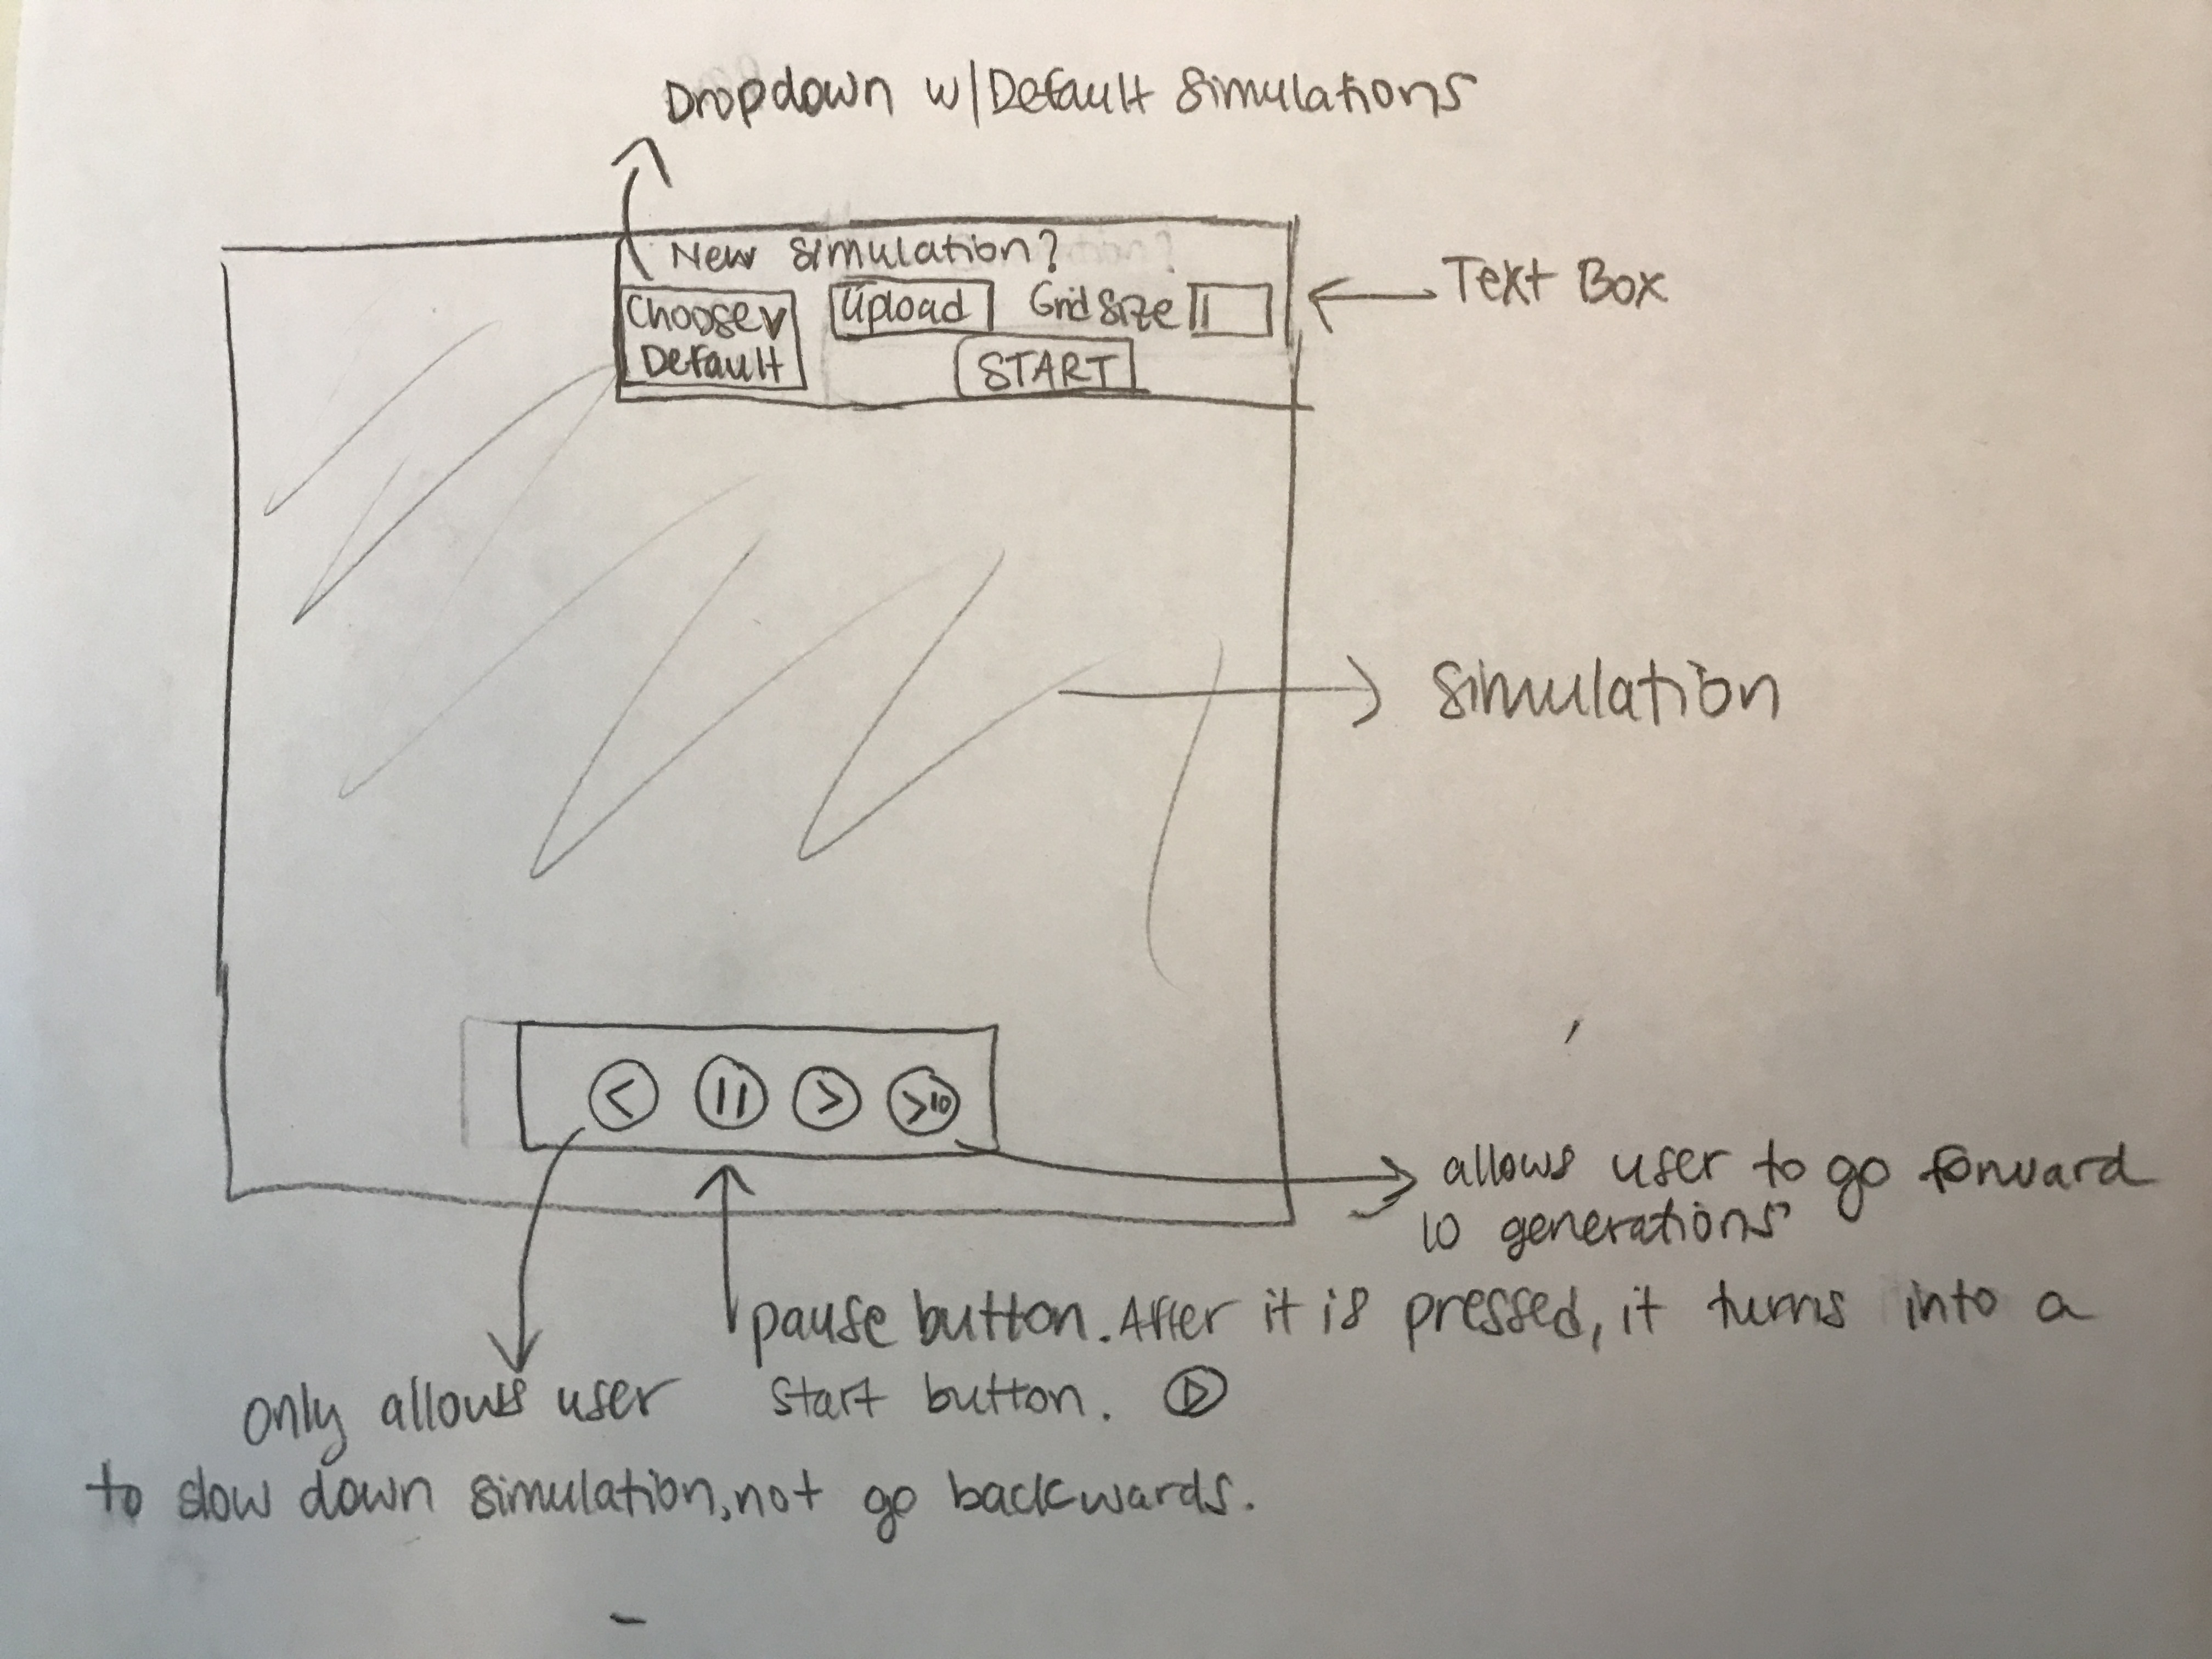 Dropdown w/Default Simulations
New Simulation?
Choose v
Default
Upload
Grid Size
START
Text Box
Simulation
<
||
>
>10
allows user to go forward
10 generations
pause button. After it is pressed, it turns into a
start button.
only allows user
to slow down simulation, not go backwards.